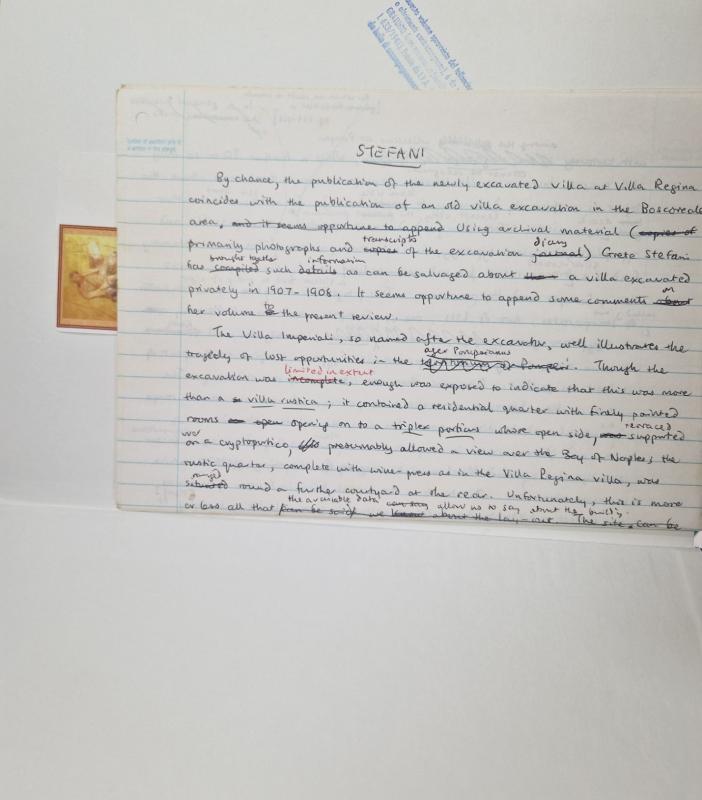 questo volume sprovvisto del talloncino
STEFANI
By chance, the publication of the newly excavated villa at Villa Regina
coincides with the publication of an old villa excavation in the Boscoreale
area, and it seems opportune to append Using archival material (copies of
transcripts diary
primarily photographs and copies of the excavation journal) Grete Stefani
brought together information
has compiled such details as can be salvaged about a villa excavated
on
privately in 1907-1908. It seems opportune to append some comments about
to
her volume the present review.
The Villa Imperiali, so named after the excavator, well illustrates the
ager Pompeianus
tragedy of lost opportunities in the of Pompeii. Though the
limited in extent
excavation was incomplete, enough was exposed to indicate that this was more
than a villa rustica; it contained a residential quarter with finely painted
terraced
rooms open opening on to a triplex porticus whose open side, supported
over
on a cryptoportico, presumably allowed a view over the Bay of Naples; the
rustic quarter, complete with wine-press as in the Villa Regina villa, was
ranged
situated round a further courtyard at the rear. Unfortunately, this is more
the available data can say allow us to say about the building.
or less all that can be said we know about the lay-out. The site can be